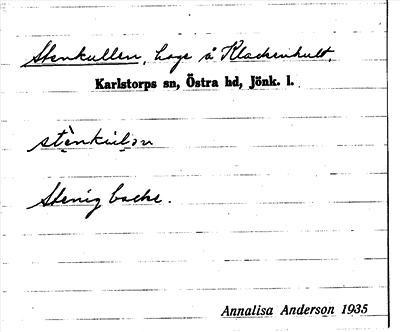 Stenkullen, hage å Klackenhult,
Karlstorps sn, Östra hd, Jönk. l.
Stenig backe.
Annalisa Anderson 1935